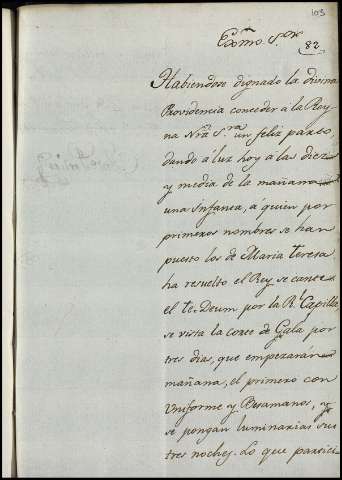 103
Exmo Sor
82
Habiendose dignado la divina
Providencia conceder á la Rey-
na Nra Sra un feliz parto,
dando á luz hoy á las diez
y media de la mañana
una Infanta, á quien por
primeros nombres se han
puesto los de Maria Teresa
ha resuelto el Rey se cante
el te Deum por la Rl Capilla
se vista la corte de Gala por
tres dias, que empezarán
mañana, el primero con
Uniforme y Besamanos, y
se pongan luminarias sus
tres noches. Lo que partici-